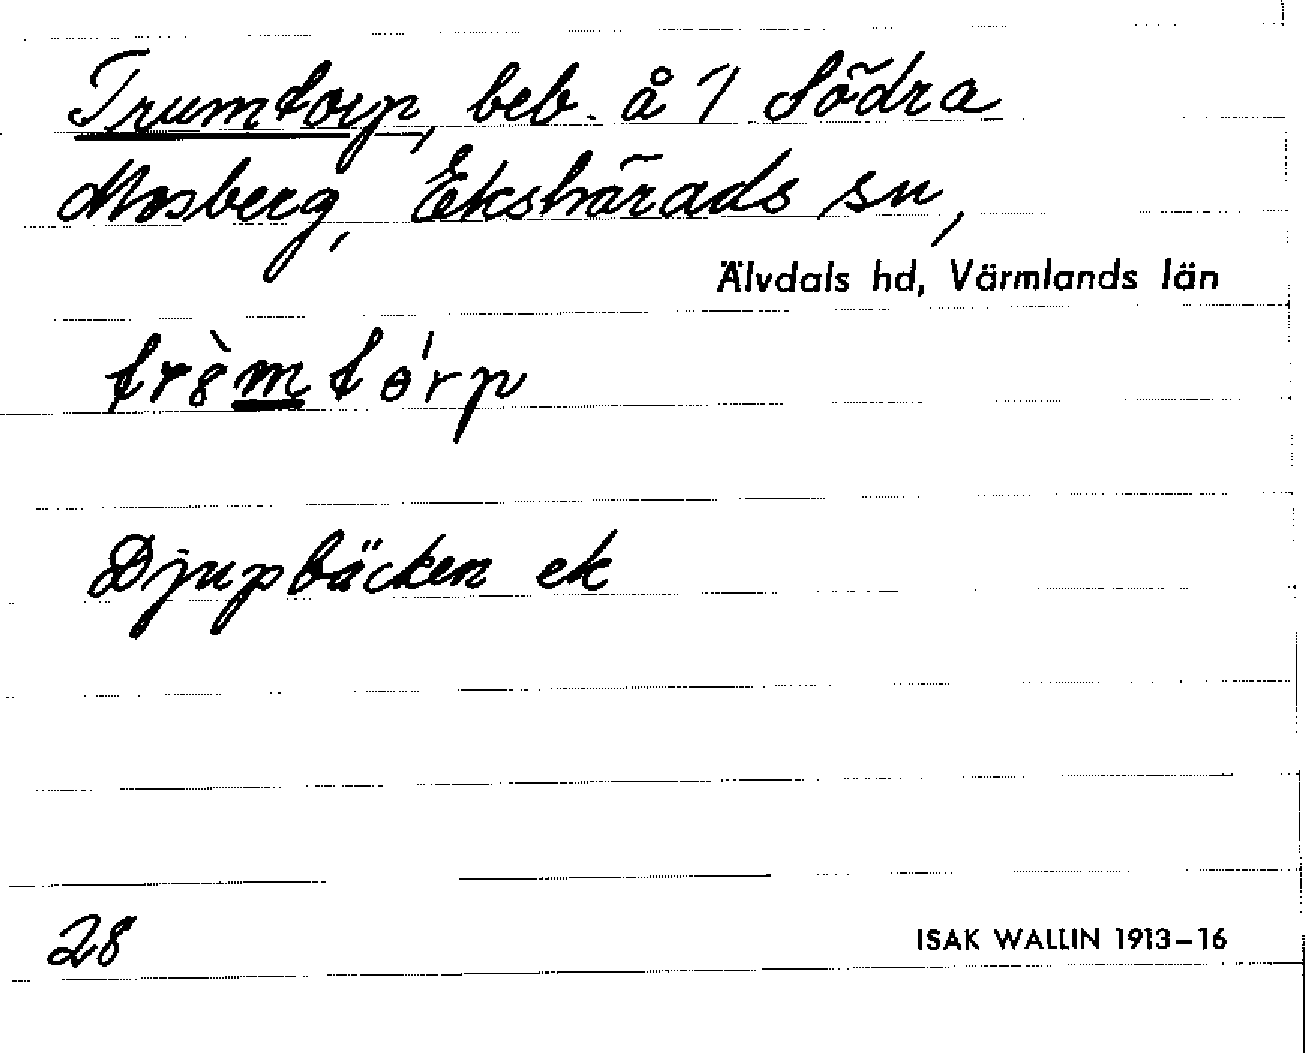 Trumtorp, beb. å 1/1 Södra
Mosberg, Ekshärads sn,
Älvdals hd, Värmlands län
trȣ̀mtɵ́rp
Djupbäcken ek
28
ISAK WALLIN 1913–16